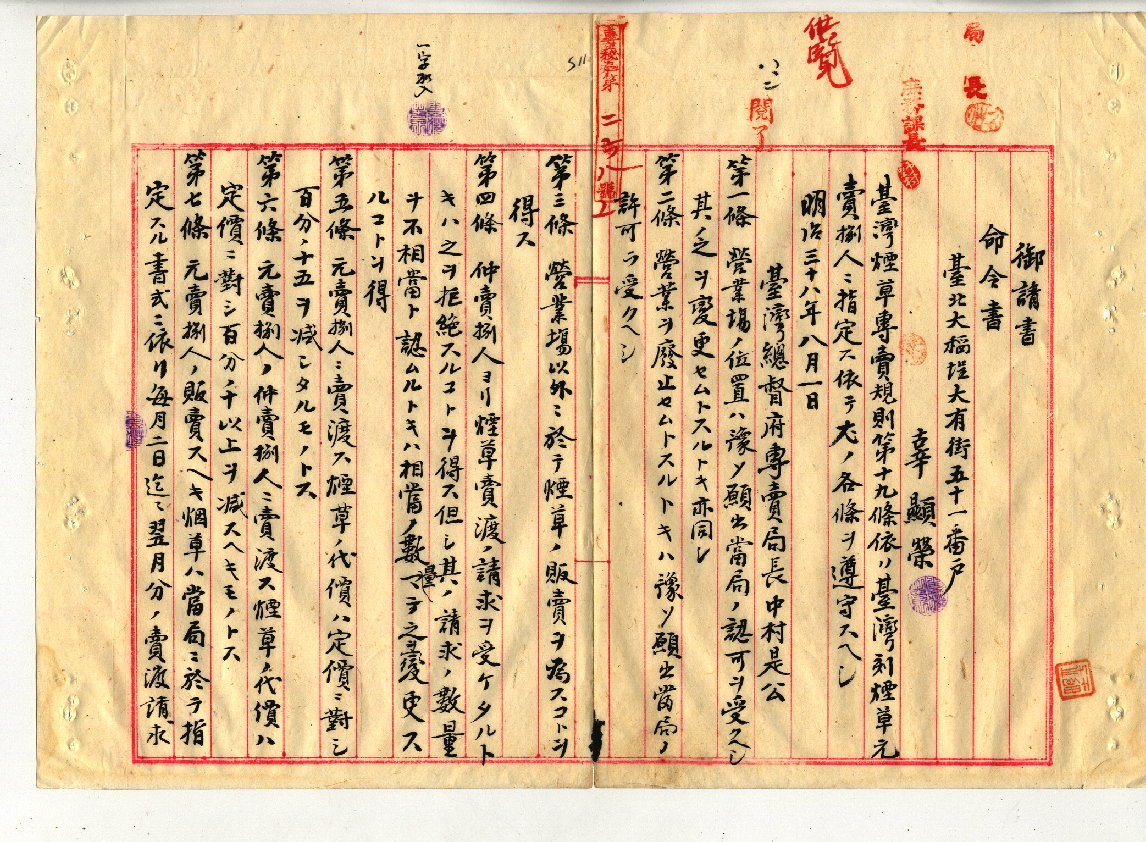 局長
庶務課長
供覧
八、二
閲了
專秘第二〇八號ノ2
一字加入
御請書
命令書
臺北大稻埕大有街五十一番戶
辜顯榮
臺灣煙草專賣規則第十九條依リ臺灣刻煙草元
賣捌人ニ指定ス依テ左ノ各條ヲ遵守スヘシ
明治三十八年八月一日
臺灣總督府專賣局長中村是公
第一條 營業場ノ位置ハ豫メ願出當局ノ認可ヲ受クヘシ
其ノ之ヲ變更セムトスルトキ亦同シ
第二條 營業ヲ廢止セムトスルトキハ豫メ願出當局ノ
許可ヲ受クヘシ
第三條 營業場以外ニ於テ煙草ノ販賣ヲ爲スコトヲ
得ス
第四條 仲賣捌人ヨリ煙草賣渡ノ請求ヲ受ケタルト
キハ之ヲ拒絕スルコトヲ得ス但シ其ノ請求ノ數量
ヲ不相當ト認ムルトキハ相當ノ數量マテ之ヲ變更ス
ルコトヲ得
第五條 元賣捌人ニ賣渡ス煙草ノ代價ハ定價ニ對シ
百分ノ十五ヲ減シタルモノトス
第六條 元賣捌人ノ仲賣捌人ニ賣渡ス煙草ノ代價ハ
定價ニ對シ百分ノ十以上ヲ減スヘキモノトス
第七條 元賣捌人ノ販賣スヘキ烟草ハ當局ニ於テ指
定スル書式ニ依リ每月二日迄ニ翌月分ノ賣渡請求